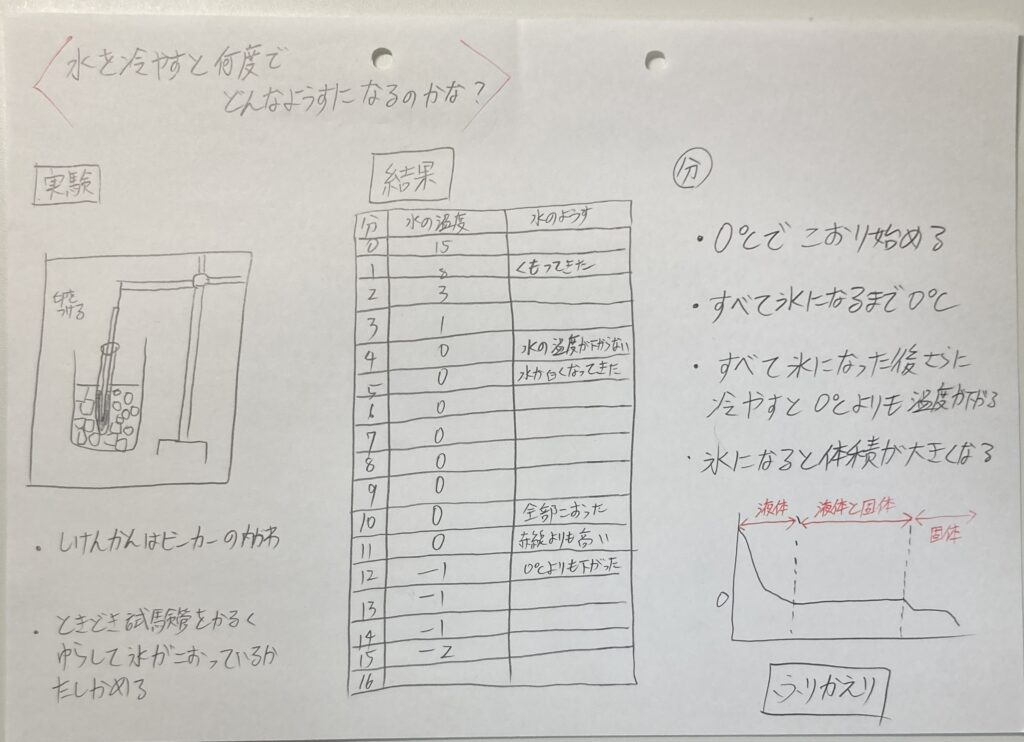 水を冷やすと何度で
どんなようすになるのかな？
実験
印を
つける
・しけんかんはビーカーの
・ときどき試験管をかるく
ゆらして氷がこおっているか
たしかめる
結果
分 水の温度 水のようす
0 15
1 8 くもってきた
2 3
3 1
4 0 水の温度が下がらない
5 0 水が白くなってきた
6 0
7 0
8 0
9 0
10 0 全部こおった
11 0 赤線よりも高い
12 -1 0℃よりも下がった
13 -1
14 -1
15 -2
16
分
・0℃でこおり始める
・すべて氷になるまで0℃
・すべて氷になった後さらに
冷やすと0℃よりも温度が下がる
・氷になると体積が大きくなる
液体 液体と固体 固体
0
ふりかえり